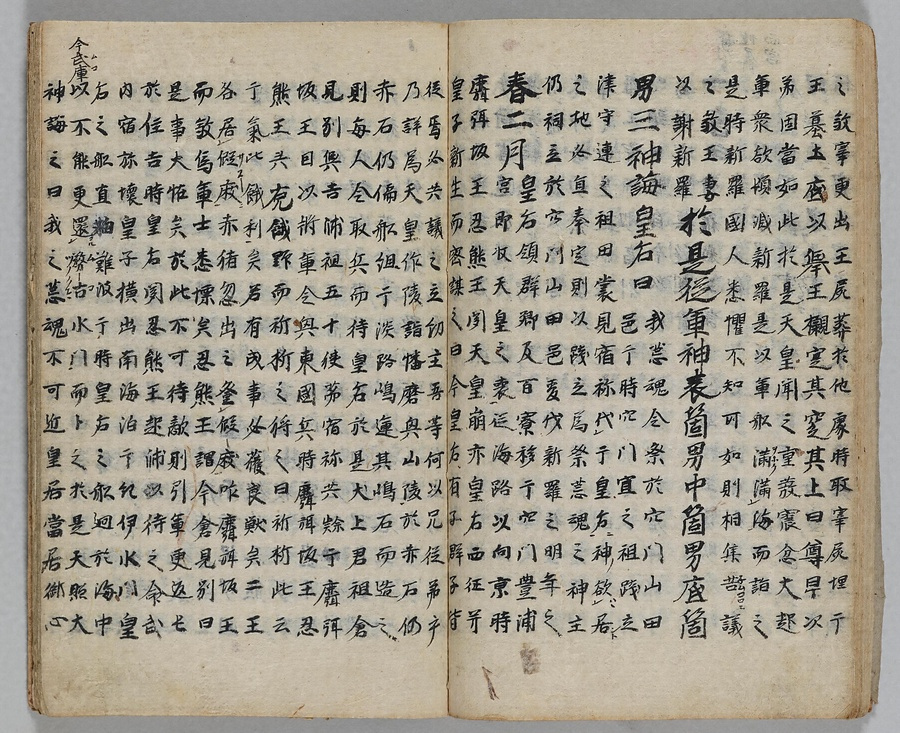 之敎宰更出王屍葬於他處時取宰屍埋于
王墓土底以擧王櫬窆其窆其上曰尊卑次
弟固當如此於是天皇聞之重發震忿大起
軍衆欲頓滅新羅是以軍船滿滿海而詣之
是時新羅國人悉懼不知可如則相集議
之敎王妻
以謝新羅
於是從軍神表筒男中筒男底筒
男三神誨皇后曰
我荒魂令祭於穴門山田
邑于時穴門直之祖踐立
津守連之祖田裳見宿祢代于皇后神欲居
之地必宜奉定則以踐立爲祭荒魂之神主
仍祠立於穴門山田邑爰伐新羅之明年之
春二月
皇后領群卿及百寮移于穴門豊浦
宮即收天皇之喪從海路以向京時
麛弭坂王忍熊王聞天皇崩亦皇后西征并
皇子新生而密謀之曰今皇后有子群子皆
從焉必共議之立幼主吾等何以兄從弟乎
乃詳爲天皇作陵詣幡磨興山陵於赤石仍
赤石仍偏船于淡路嶋運其嶋石而造之
則每人令取兵而待皇后於是犬上君祖倉
見別與吉師祖五十狹茅宿祢共隸于麛弭
坂王因以將軍令興東國兵時麛弭坂王忍
熊王共克餓野而祈狩之將之曰祈狩此云
于氣比餓利矣若有成事必獲良獸矣二王
各居假庪赤猪忽出之登假庪咋麛弭坂王
而敎焉軍士悉慄矣忍熊王謂今倉見別曰
是事大恠矣於此不可待敵則引軍更返七
於住吉時皇后聞忍熊王起師以待之命武
内宿祢懷皇子横出南海泊于紀伊水門皇
后之船直難波于時皇后之船廻於海中
今武庫
ムコ
以不能更還務古水門而卜之於是天照大
神誨之曰我之荒魂不可近皇居當居御心